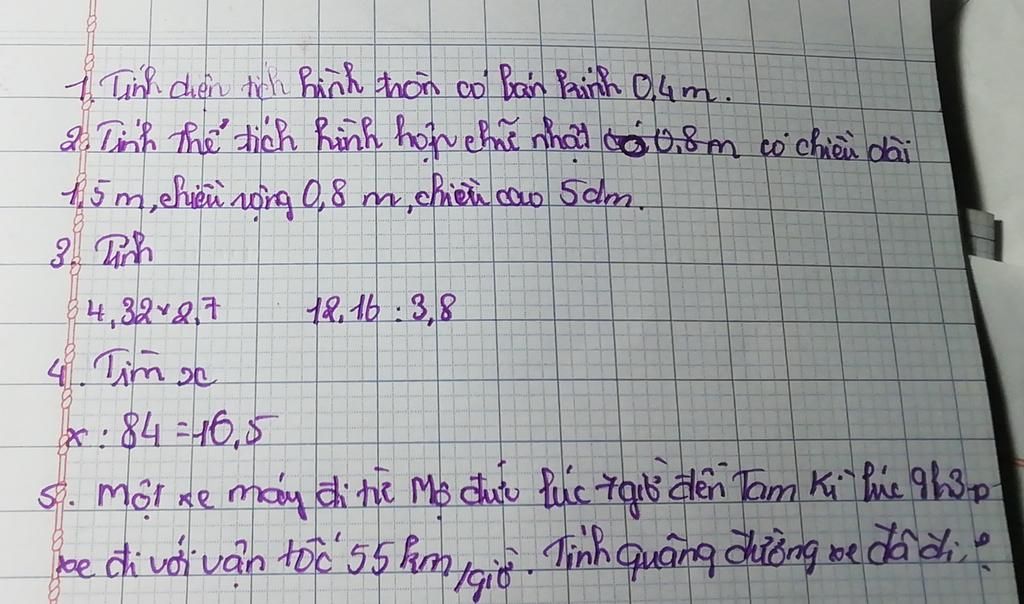 1. Tính diện tích hình tròn có bán kính 0,4 m.
2. Tính thể tích hình hộp chữ nhật có 0,8 m có chiều dài
1,5 m, chiều rộng 0,8 m, chiều cao 5dm.
3. Tính
4,32 x 2,7 12,16 : 3,8
4. Tìm x
x : 84 = 16,5
5. Một xe máy đi từ Mộ đức lúc 7 giờ đến Tam Kì lúc 9h30
xe đi với vận tốc 55 km/giờ. Tính quãng đường xe đã đi.?